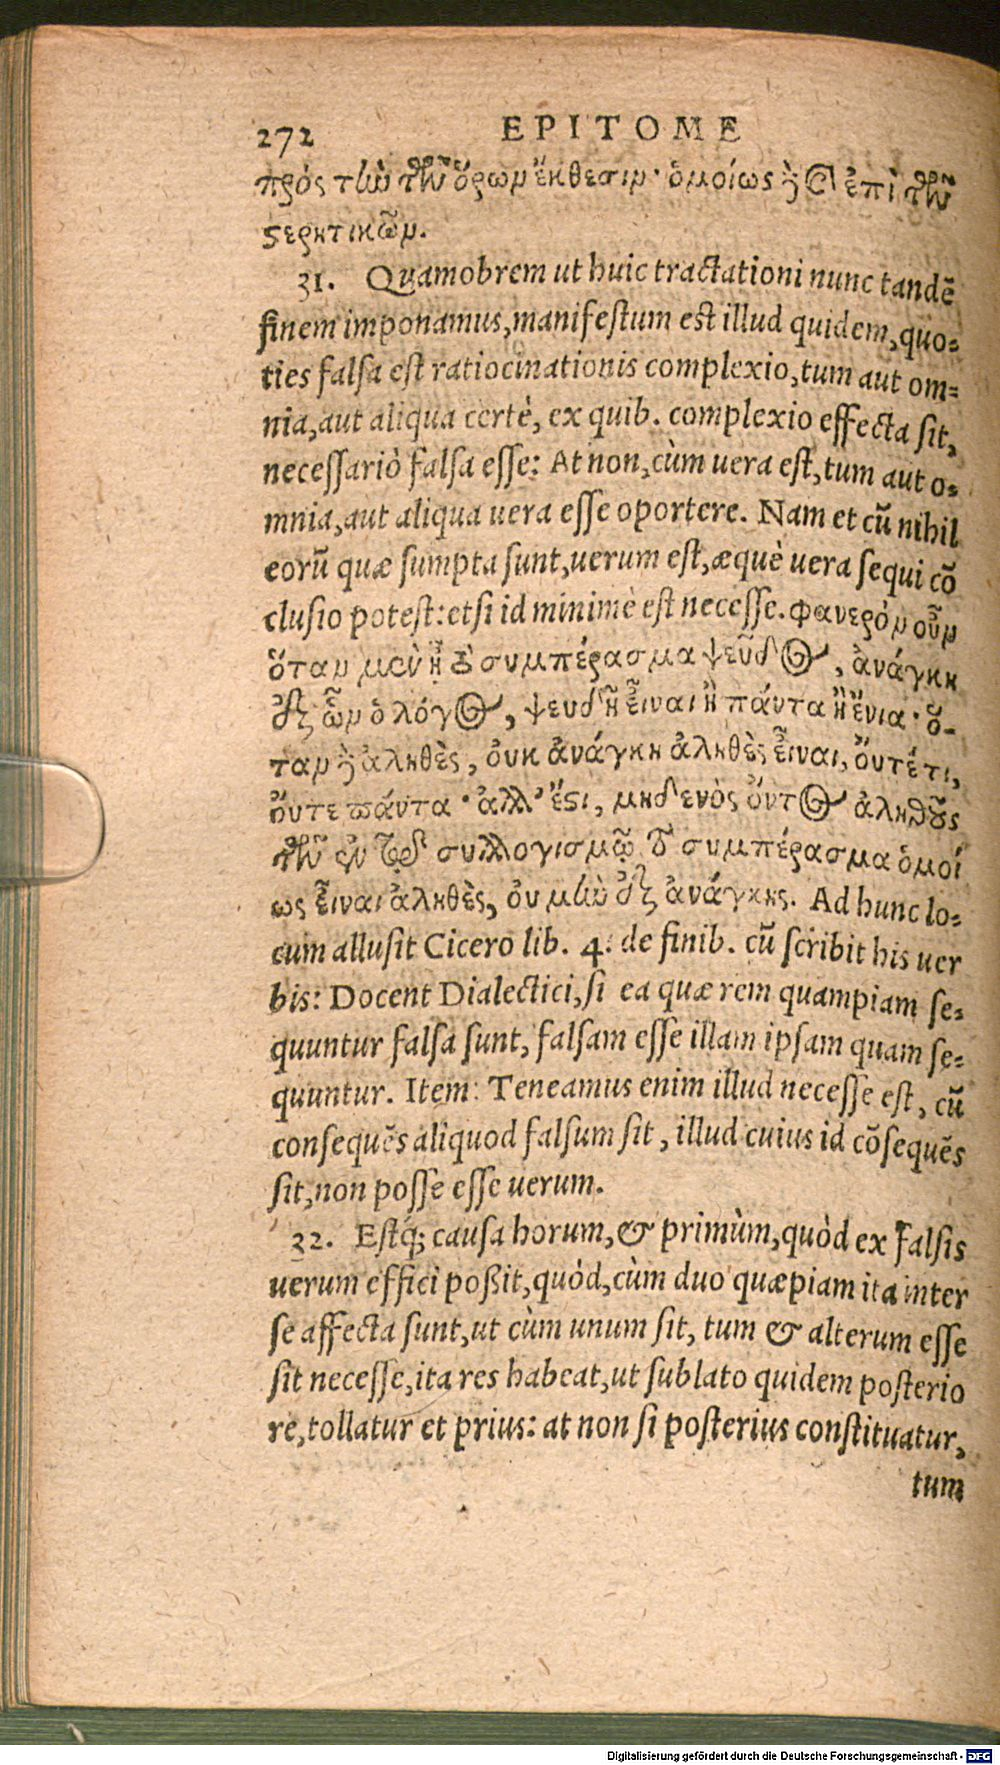 272 EPITOME
πρός τὴν τῶν ὅρων ἔκθεσιν· ὁμοίως ἢ καὶ ἐπὶ τῶν
ϛερητικῶν.
31. Quamobrem ut huic tractationi nunc tandē
finem imponamus, manifestum est illud quidem, quo-
ties falsa est ratiocinationis complexio, tum aut om-
nia, aut aliqua certè, ex quib. complexio effecta sit,
necessariò falsa esse: At non, cùm uera est, tum aut o-
mnia, aut aliqua uera esse oportere. Nam et cū nihil
eorū quæ sumpta sunt, uerum est, æquè uera sequi cō
clusio potest: etsi id minimè est necesse. φανερόν οὖν
ὅταν μὲν ᾖ τὸ συμπέρασμα ψεῦδος, ἀνάγκη
ἐξ ὧν ὁ λόγος, ψευδῆ εἶναι ἢ πάντα ἢ ἔνια· ὅ-
ταν δὲ ἀληθὲς, οὐκ ἀνάγκη ἀληθὲς εἶναι, οὔτέ τι,
οὔτε πάντα· ἀλλ’ ἔϛι, μηδενὸς ὄντος ἀληθοῦς
τῶν ἐν τῷ συλλογισμῷ τὸ συμπέρασμα ὁμοί
ως εἶναι ἀληθὲς, οὐ μὴν ἐξ ἀνάγκης. Ad hunc lo-
cum allusit Cicero lib. 4. de finib. cū scribit his uer
bis: Docent Dialectici, si ea quæ rem quampiam se-
quuntur falsa sunt, falsam esse illam ipsam quam se-
quuntur. Item: Teneamus enim illud necesse est, cū
consequēs aliquod falsum sit, illud cuius id cōsequēs
sit, non posse esse uerum.
32. Estq́; causa horum, & primùm, quòd ex falsis
uerum effici poßit, quòd, cùm duo quæpiam ita inter
se affecta sunt, ut cùm unum sit, tum & alterum esse
sit necesse, ita res habeat, ut sublato quidem posterio
re, tollatur et prius: at non si posterius constituatur,
tum
Digitalisierung gefördert durch die Deutsche Forschungsgemeinschaft - DFG